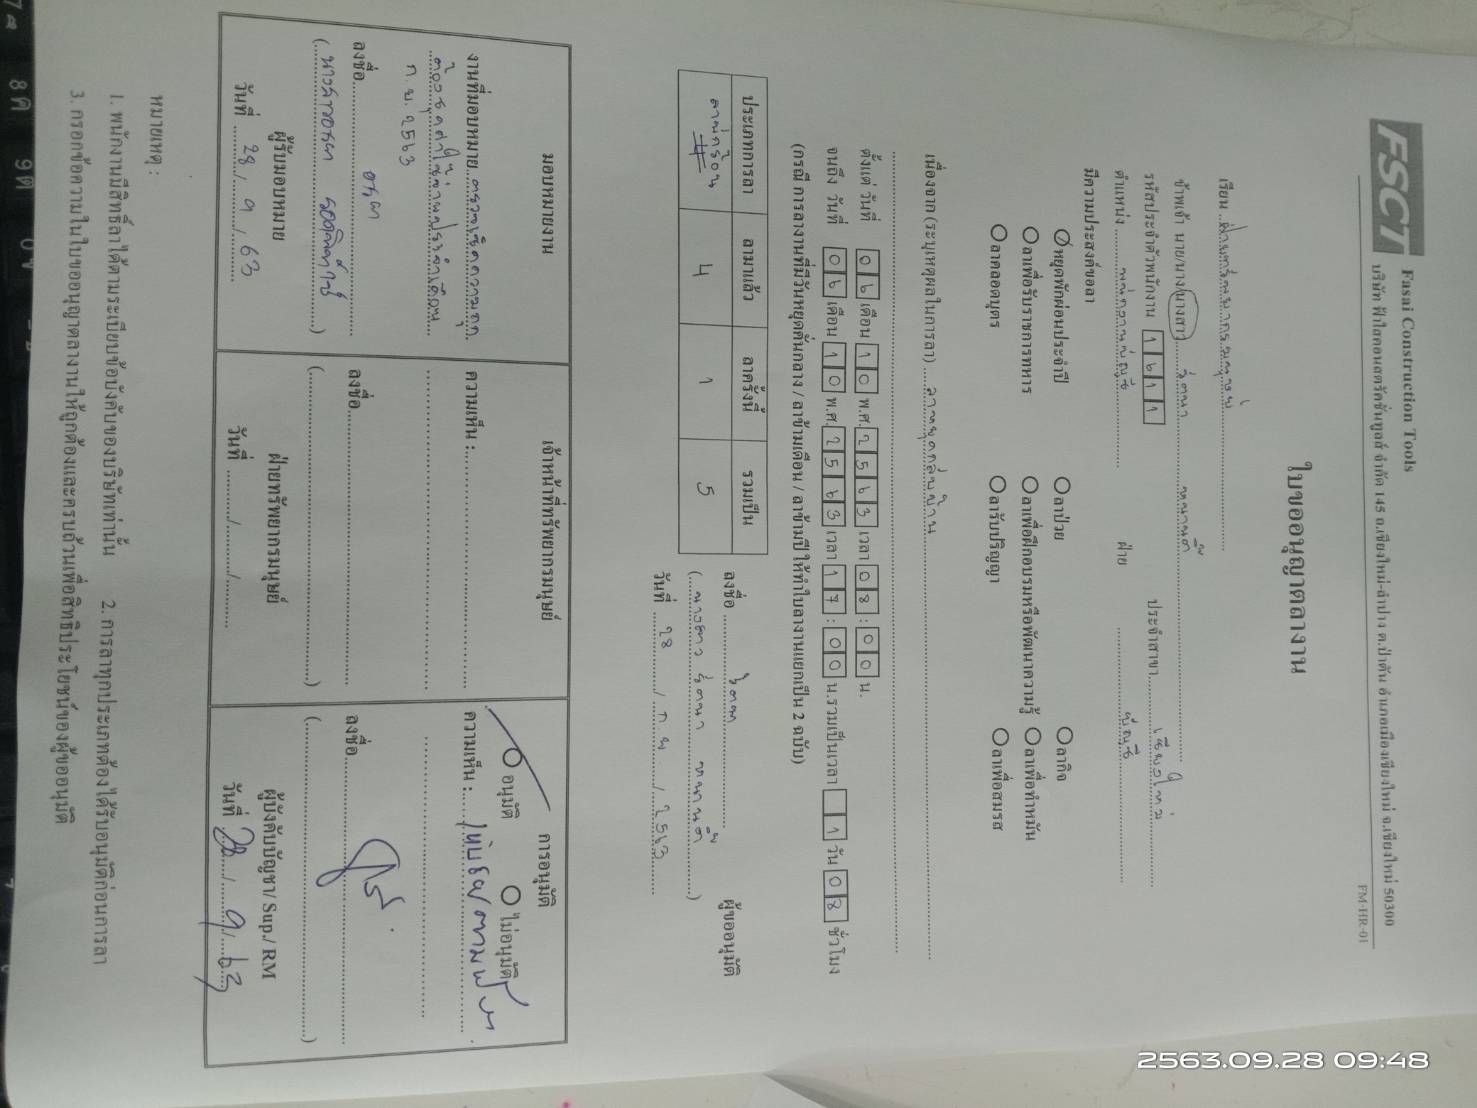 FSCT
Fasai Construction Tools
บริษัท ฟ้าใสคอนสตรัคชั่นทูลส์ จำกัด 145 ถ.เชียงใหม่-ลำปาง ต.ป่าตัน อำเภอเมืองเชียงใหม่ จ.เชียงใหม่ 50300
FM-HR-01
ใบขออนุญาตลางาน
เรียน ฝ่ายทรัพยากรมนุษย์
ข้าพเจ้า นาย/นาง/นางสาว
รหัสประจำตัวพนักงาน 1611 ประจำสาขา เชียงใหม่
ตำแหน่ง พนักงานบัญชี ฝ่าย บัญชี
มีความประสงค์ขอลา
หยุดพักผ่อนประจำปี ลาป่วย ลากิจ
ลาเพื่อรับราชการทหาร ลาเพื่อฝึกอบรมหรือพัฒนาความรู้ ลาเพื่อทำหมัน
ลาคลอดบุตร ลารับปริญญา ลาเพื่อสมรส
เนื่องจาก (ระบุเหตุผลในการลา) ลาหยุดกลับบ้าน
ตั้งแต่ วันที่ 06 เดือน 10 พ.ศ. 2563 เวลา 08 : 00 น.
จนถึง วันที่ 06 เดือน 10 พ.ศ. 2563 เวลา 17 : 00 น.รวมเป็นเวลา 1 วัน 08 ชั่วโมง
(กรณี การลางานที่มีวันหยุดคั่นกลาง / ลาข้ามเดือน / ลาข้ามปี ให้ทำใบลางานแยกเป็น 2 ฉบับ)
ประเภทการลา ลามาแล้ว ลาครั้งนี้ รวมเป็น
ลาพักร้อน 4 1 5
ลงชื่อ ผู้ขออนุมัติ
วันที่ 28 / ก.ย. / 2563
มอบหมายงาน
งานที่มอบหมาย ตรวจเช็คความถูก
ก.ย. 2563
ลงชื่อ
ผู้รับมอบหมาย
วันที่ 28 / 9 / 63
เจ้าหน้าที่ทรัพยากรมนุษย์
ความเห็น :
ลงชื่อ
ฝ่ายทรัพยากรมนุษย์
วันที่
การอนุมัติ
อนุมัติ ไม่อนุมัติ
ความเห็น :
ลงชื่อ
ผู้บังคับบัญชา/ Sup./ RM
วันที่ 28 / 9 / 63
หมายเหตุ :
1. พนักงานมีสิทธิ์ลาได้ตามระเบียบข้อบังคับของบริษัทเท่านั้น 2. การลาทุกประเภทต้องได้รับอนุมัติก่อนการลา
3. กรอกข้อความในใบขออนุญาตลางานให้ถูกต้องและครบถ้วนเพื่อสิทธิประโยชน์ของผู้ขออนุมัติ
2563.09.28 09:48